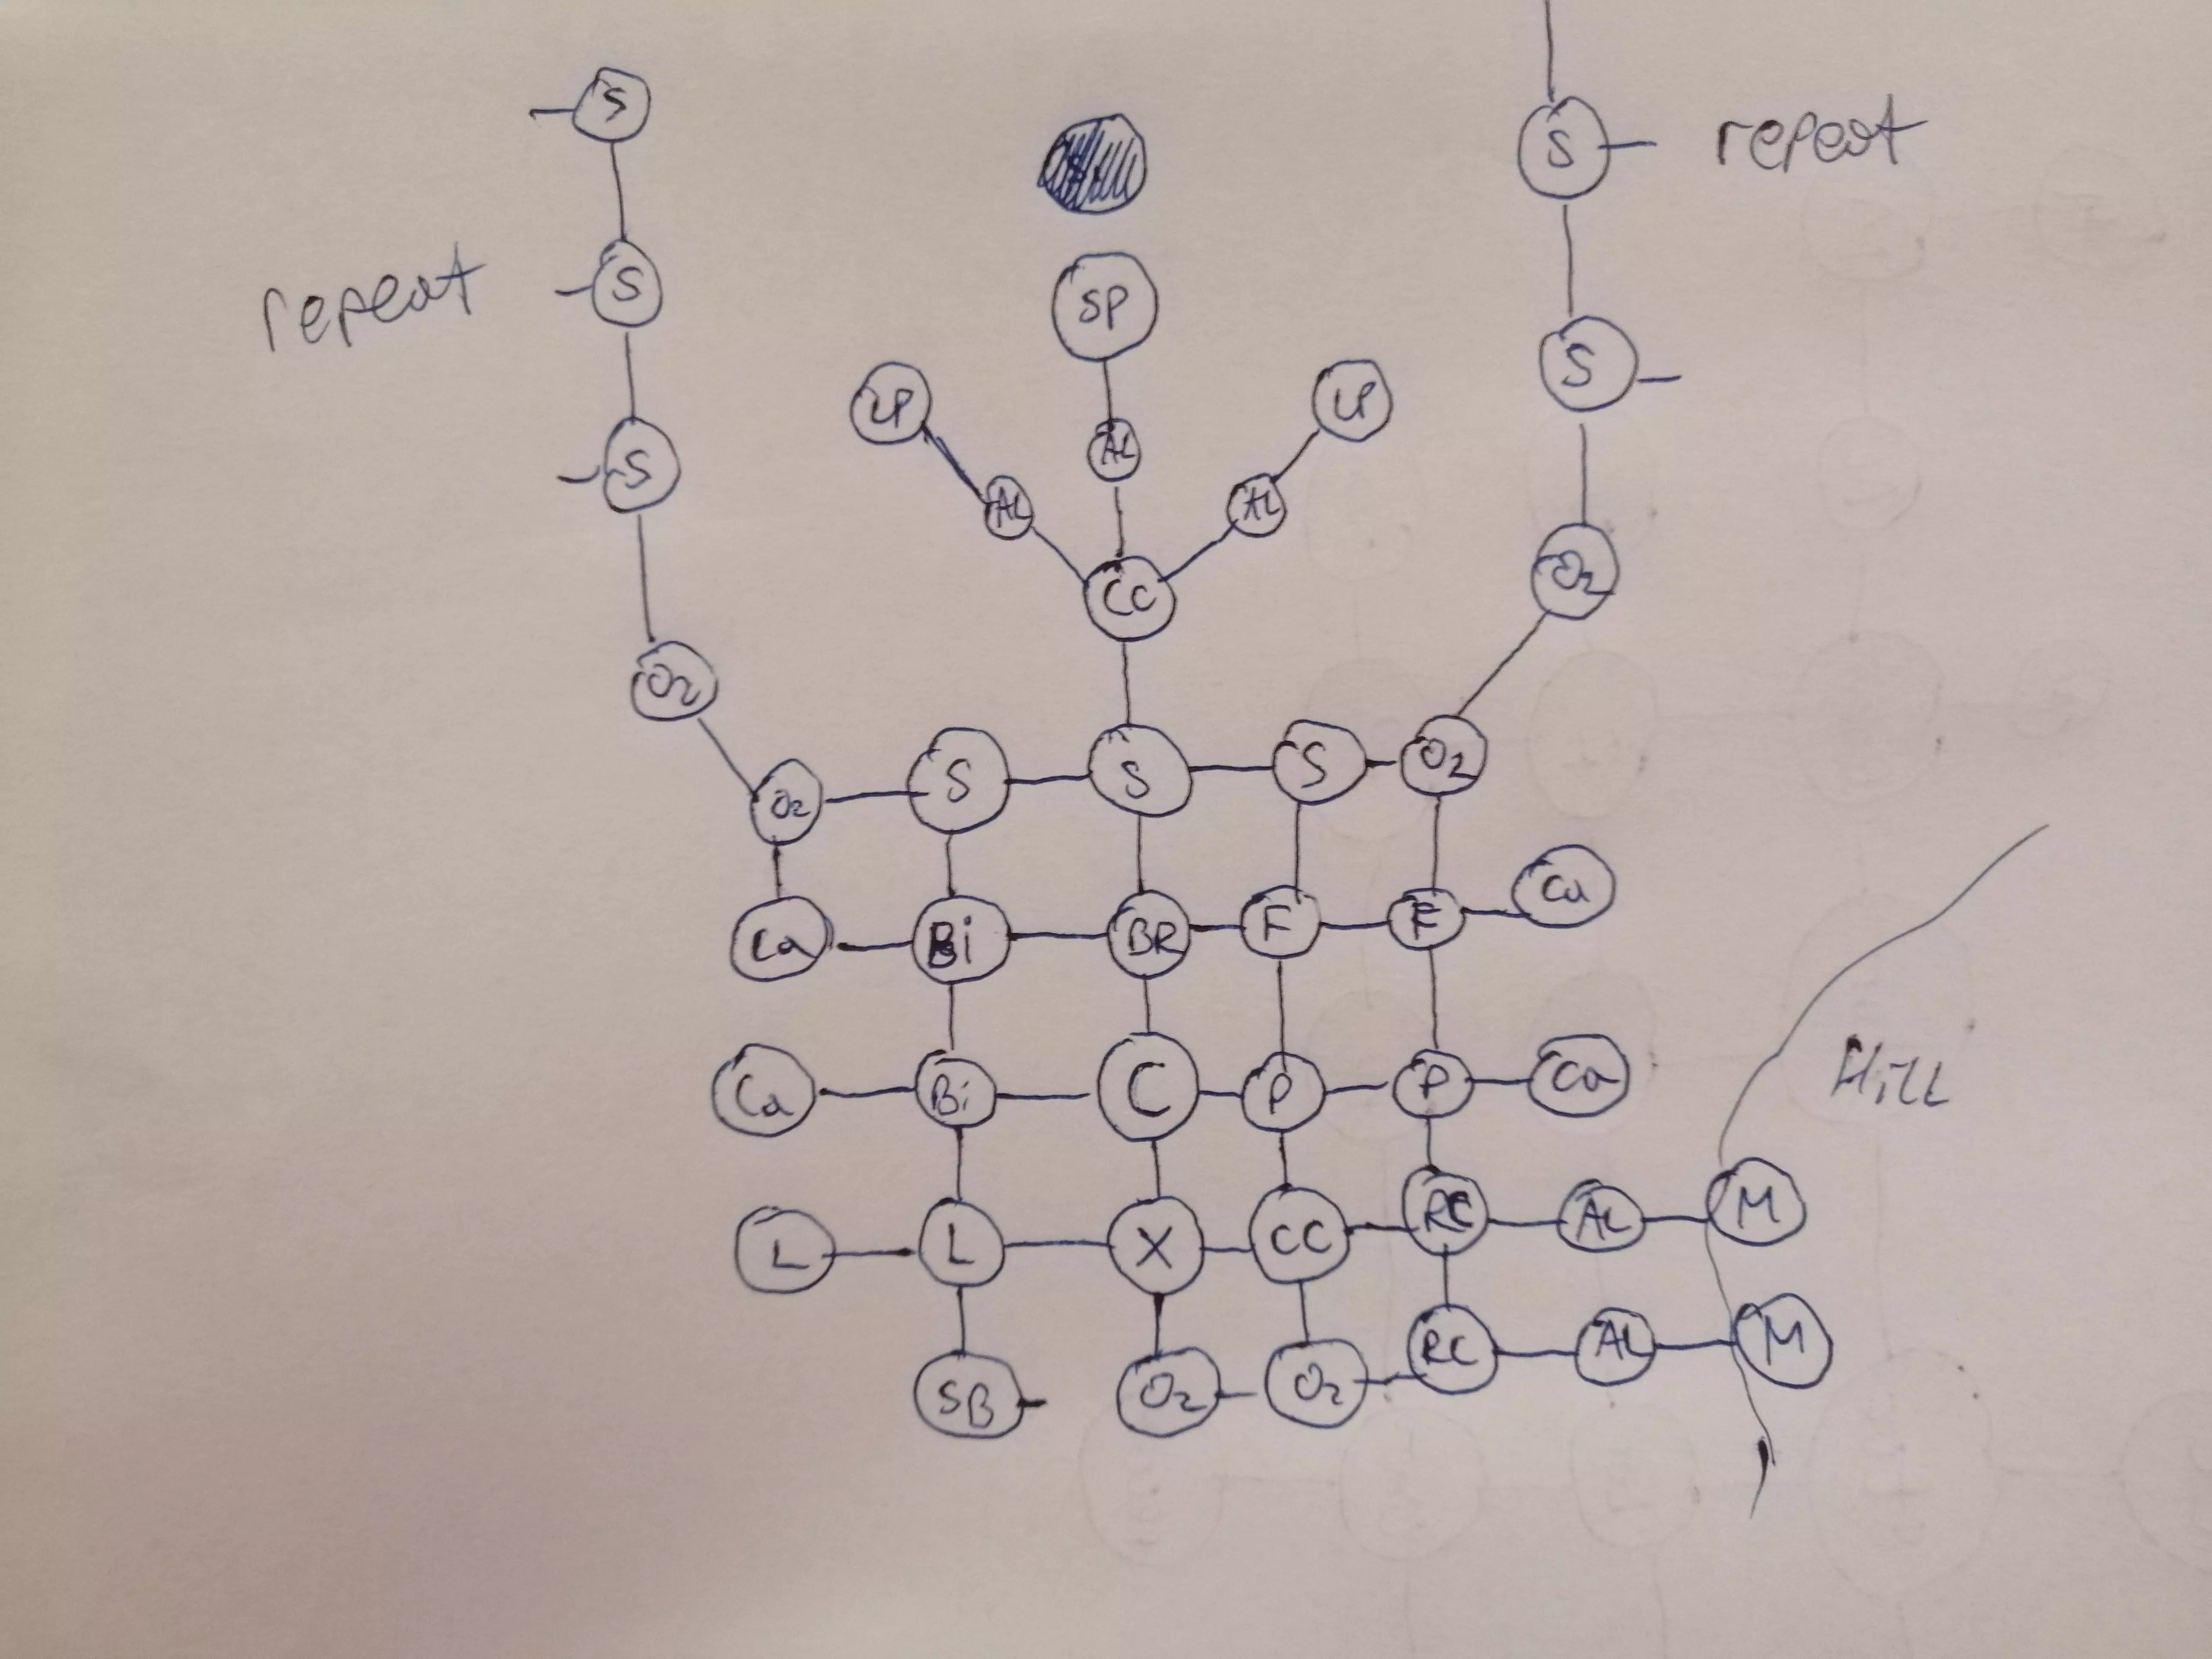 S
S repeat
SP
repeat S
S
LP LP
AL
S
AL AL
O2
Cc
O2
O2 S S S O2
Ca Bi BR F F Ca
Ca Bi C P P Ca
L L X CC RC AL M
Hill
SB O2 O2 RC AL M